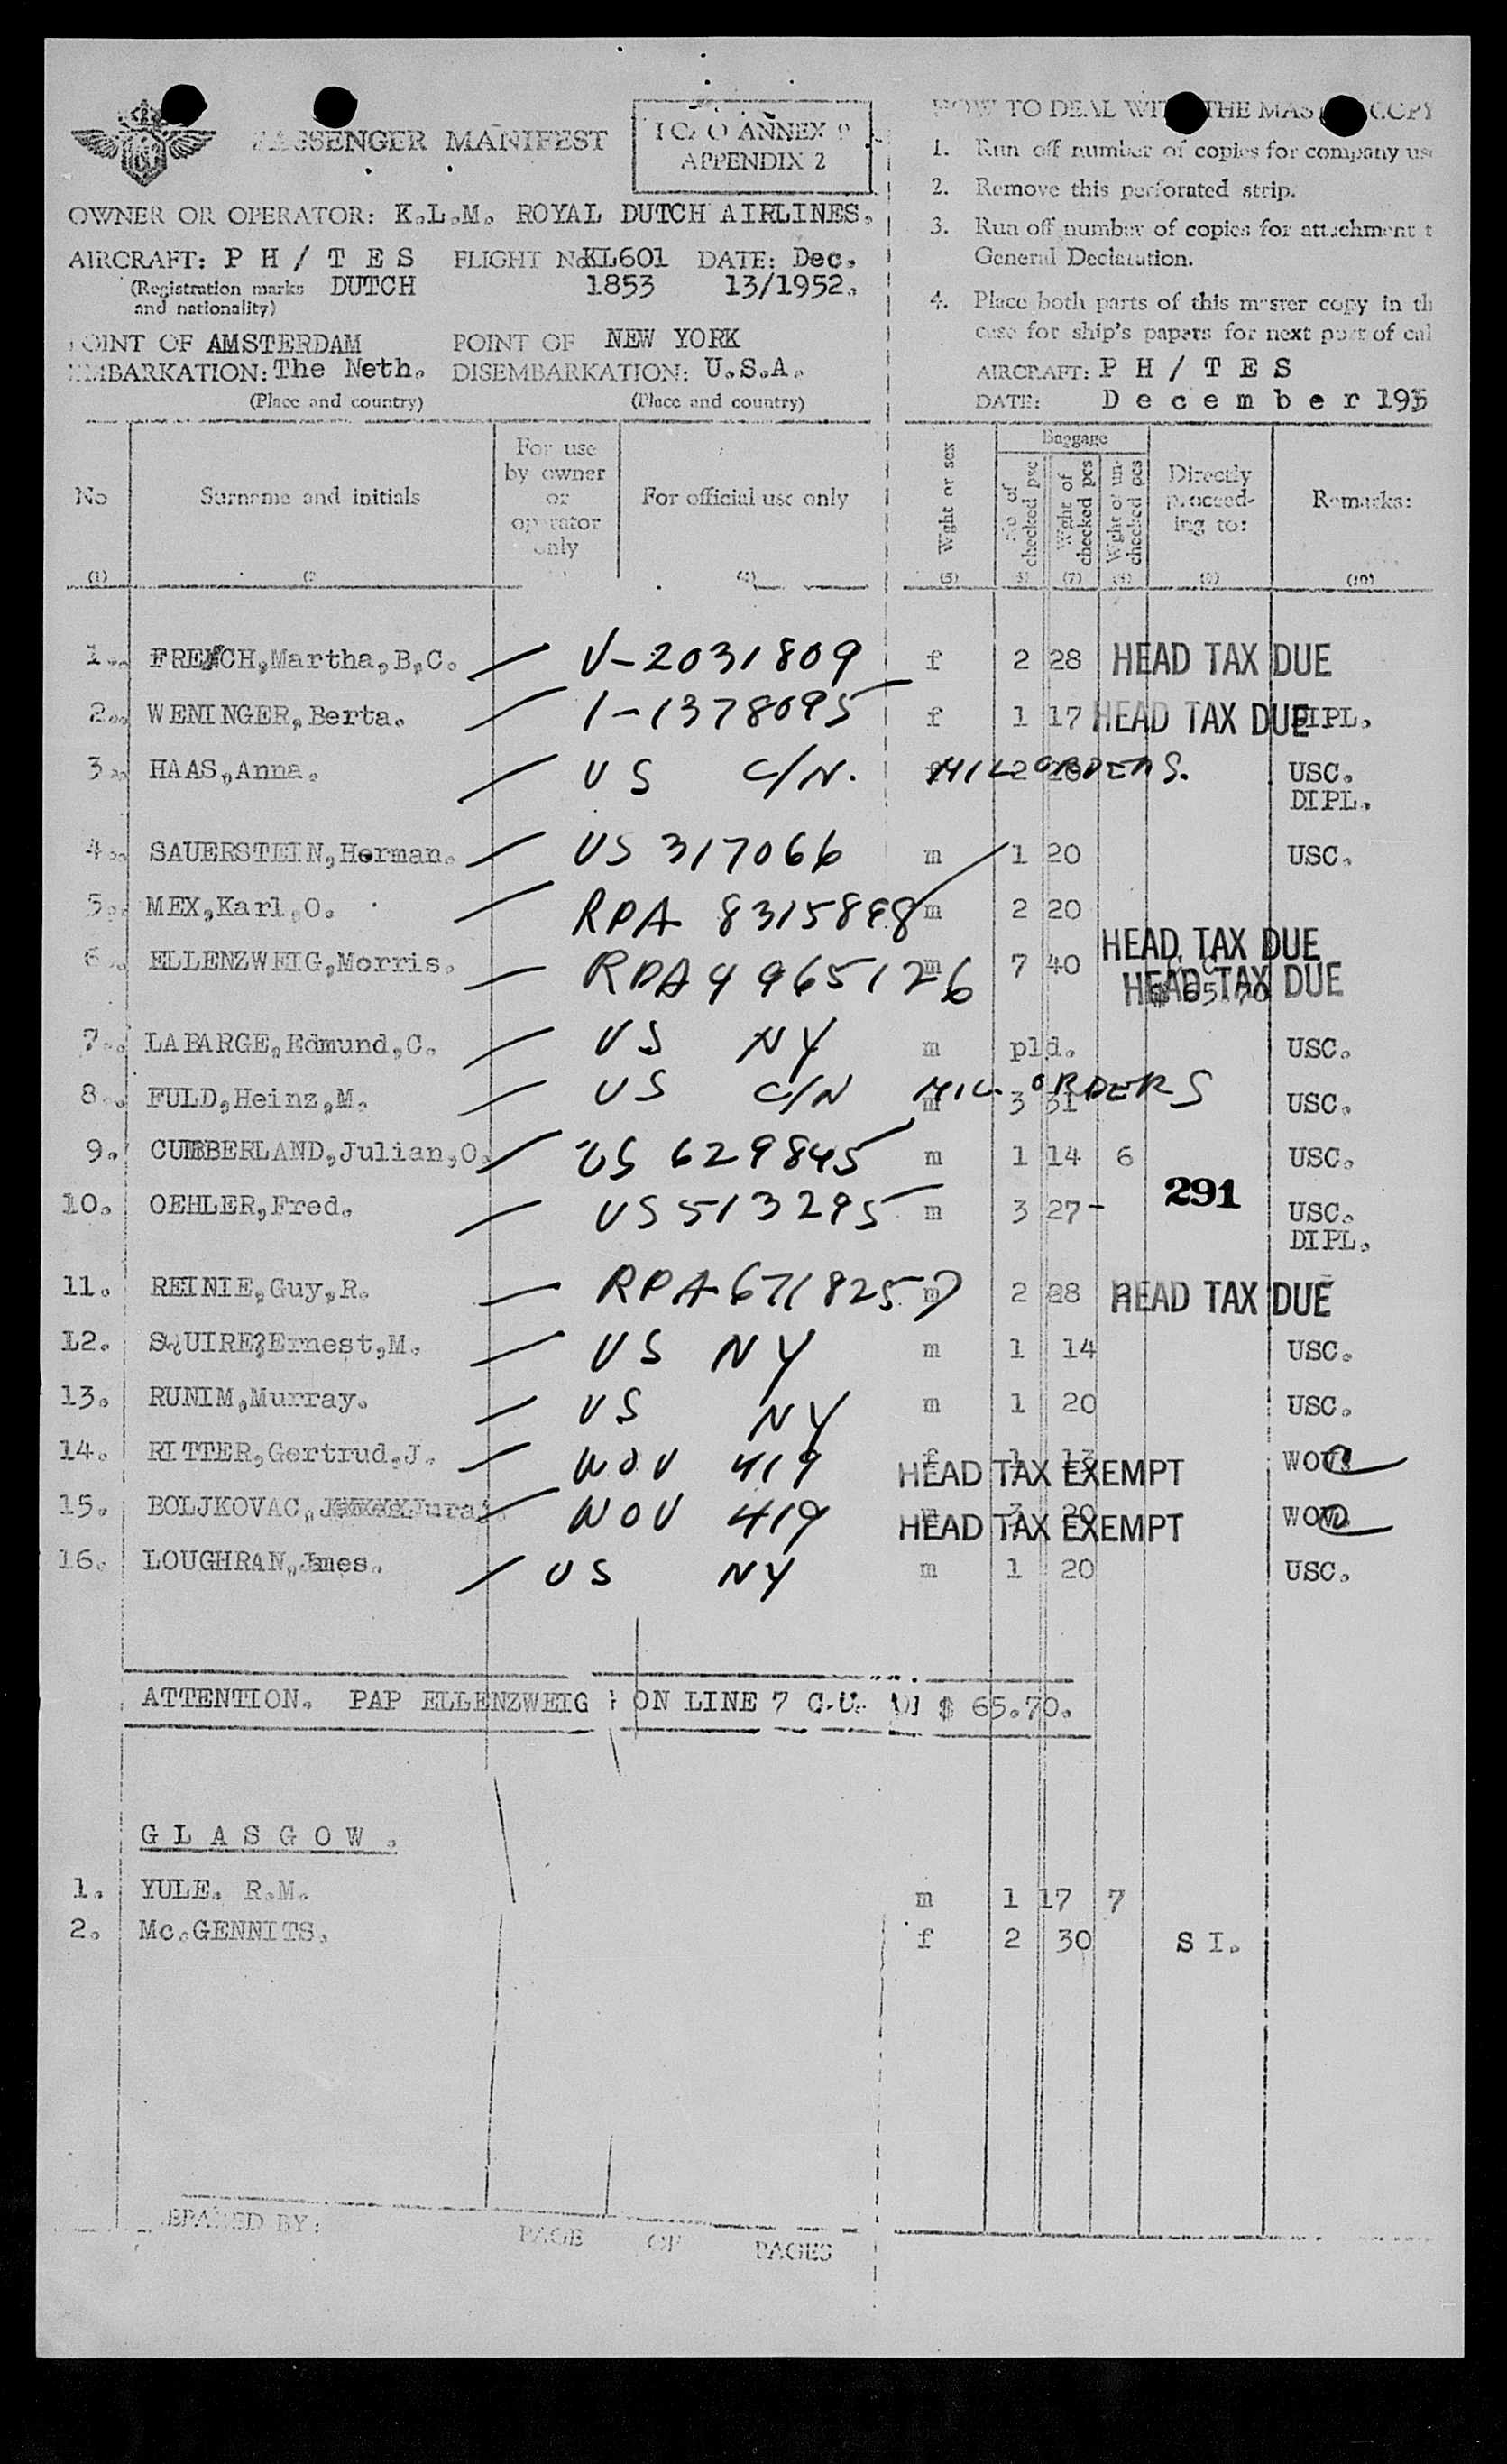 PASSENGER MANIFEST
ICAO ANNEX 9
APPENDIX 2
OWNER OR OPERATOR: K.L.M. ROYAL DUTCH AIRLINES.
AIRCRAFT: P H / T E S FLIGHT No KL601 DATE: Dec.
(Registration marks and nationality) DUTCH 1853 13/1952.
POINT OF EMBARKATION: AMSTERDAM The Neth. POINT OF DISEMBARKATION: NEW YORK U.S.A.
(Place and country) (Place and country)
HOW TO DEAL WITH THE MASTER COPY
1. Run off number of copies for company use
2. Remove this perforated strip.
3. Run off number of copies for attachment t
General Declaration.
4. Place both parts of this master copy in th
case for ship's papers for next port of cal
AIRCRAFT: P H / T E S
DATE: D e c e m b e r 195
No Surname and initials For use by owner or operator only For official use only Wght or sex Baggage No of checked pcs Wght of checked pcs Wght of un-checked pcs Directly proceed-ing to: Remarks:
(1) (2 (4) (5) 6) (7) (8) (9) (10)
1. FRENCH,Martha,B,C. V-2031809 f 2 28 HEAD TAX DUE
2. WENINGER,Berta. 1-1378095 f 1 17 HEAD TAX DUE DIPL.
3. HAAS,Anna. US C/N. MIL ORDERS. 2 USC.
DIPL.
4. SAUERSTEIN,Herman. US 317066 m 1 20 USC.
5. MEX,Karl,O. RPA 8315898 m 2 20
6. ELLENZWEIG,Morris. RPA 9965126 m 7 40 HEAD TAX DUE
HEAD TAX DUE $ 65.70
7. LABARGE,Edmund,C. US NY m pld. USC.
8. FULD,Heinz,M. US C/N MIL. ORDERS m 3 31 USC.
9. CUMBERLAND,Julian,O. US 629845 m 1 14 6 USC.
10. OEHLER,Fred. US 513295 m 3 27- 291 USC.
DIPL.
11. REINIE,Guy,R. RPA 6718257 m 2 28 HEAD TAX DUE
12. SQUIRE,Ernest,M. US NY m 1 14 USC.
13. RUNIM,Murray. US NY m 1 20 USC.
14. RITTER,Gertrud,J. WOV 419 f 1 13 HEAD TAX EXEMPT WOV
15. BOLJKOVAC, Juraj. WOV 419 3 20 HEAD TAX EXEMPT WOV
16. LOUGHRAN,James. US NY m 1 20 USC.
ATTENTION. PAP ELLENZWEIG ON LINE 7 C.U. $ 65.70.
G L A S G O W .
1. YULE. R.M. m 1 17 7
2. Mc.GENNITS. f 2 30 S I.
PREPARED BY: PAGE OF PAGES